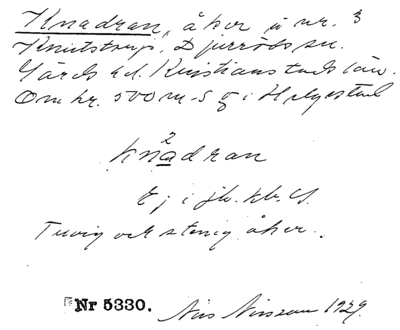 Knadran, åker å nr. 3
Knutstorp, Djurröds sn.
Gärds hd. Kristianstads län.
Omkr. 500 m S g i H
2
knadran
Ej i jb. kb. Ch.
Tuvig och stenig åker.
Nr 5330.
Nils Nilsson 1929.